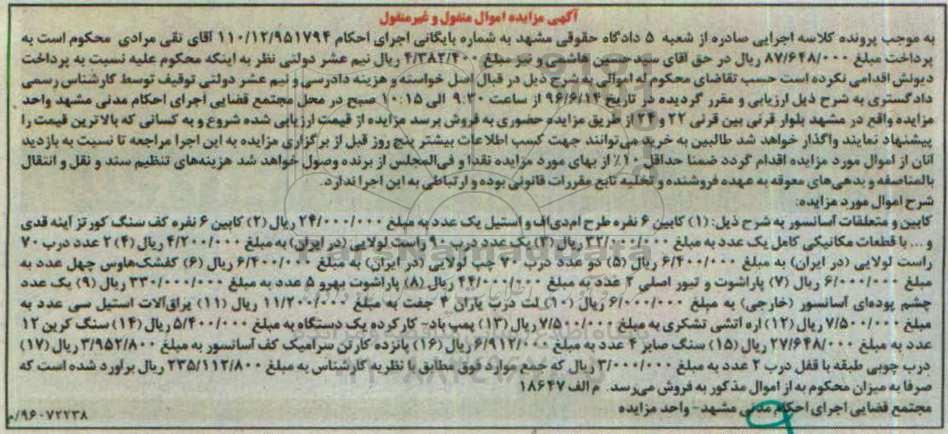 آگهی مزایده اموال منقول و غیرمنقول
به موجب پرونده کلاسه اجرایی صادره از شعبه ۵ دادگاه حقوقی مشهد به شماره بایگانی اجرای احکام ۱۱۰/۱۲/۹۵۱۷۹۴ آقای نقی مرادی محکوم است به
پرداخت مبلغ ۸۷/۶۴۸/۰۰۰ ریال در حق آقای سید حسین هاشمی و نیز مبلغ ۴/۳۸۲/۴۰۰ ریال نیم عشر دولتی نظر به اینکه محکوم علیه نسبت به پرداخت
دیونش اقدامی نکرده است حسب تقاضای محکوم له اموالی به شرح ذیل در قبال اصل خواسته و هزینه دادرسی و نیم عشر دولتی توقیف توسط کارشناس رسمی
دادگستری به شرح ذیل ارزیابی و مقرر گردیده در تاریخ ۹۶/۶/۱۴ از ساعت ۹:۳۰ الی ۱۰:۱۵ صبح در محل مجتمع قضایی اجرای احکام مدنی مشهد واحد
مزایده واقع در مشهد بلوار قرنی بین قرنی ۲۲ و ۲۴ از طریق مزایده حضوری به فروش برسد مزایده از قیمت ارزیابی شده شروع و به کسانی که بالاترین قیمت را
پیشنهاد نمایند واگذار خواهد شد طالبین به خرید می‌توانند جهت کسب اطلاعات بیشتر پنج روز قبل از برگزاری مزایده به این اجرا مراجعه تا نسبت به بازدید
آنان از اموال مورد مزایده اقدام گردد ضمنا حداقل ۱۰٪ از بهای مورد مزایده نقدا و فی‌المجلس از برنده وصول خواهد شد هزینه‌های تنظیم سند و نقل و انتقال
بالمناصفه و بدهی‌های معوقه به عهده فروشنده و تخلیه تابع مقررات قانونی بوده و ارتباطی به این اجرا ندارد.
شرح اموال مورد مزایده:
کابین و متعلقات آسانسور به شرح ذیل: (۱) کابین ۶ نفره طرح ام‌دی‌اف و استیل یک عدد به مبلغ ۲۴/۰۰۰/۰۰۰ ریال (۲) کابین ۶ نفره کف سنگ کورتز آینه قدی
و... با قطعات مکانیکی کامل یک عدد به مبلغ ۲۲/۰۰۰/۰۰۰ ریال (۳) یک عدد درب ۹۰ راست لولایی (در ایران) به مبلغ ۴/۲۰۰/۰۰۰ ریال (۴) ۲ عدد درب ۷۰
راست لولایی (در ایران) به مبلغ ۶/۴۰۰/۰۰۰ ریال (۵) دو عدد درب ۷۰ چپ لولایی (در ایران) به مبلغ ۶/۴۰۰/۰۰۰ ریال (۶) کفشک‌هاوس چهل عدد به
مبلغ ۶/۰۰۰/۰۰۰ ریال (۷) پاراشوت و تیور اصلی ۲ عدد به مبلغ ۴۴/۰۰۰/۰۰۰ ریال (۸) پاراشوت بهرو ۵ عدد به مبلغ ۳۳۰/۰۰۰/۰۰۰ ریال (۹) یک عدد
چشم پوده‌ای آسانسور (خارجی) به مبلغ ۶/۰۰۰/۰۰۰ ریال (۱۰) لت درت یاران ۴ جفت به مبلغ ۱۱/۲۰۰/۰۰۰ ریال (۱۱) یراق‌آلات استیل سی عدد به
مبلغ ۷/۵۰۰/۰۰۰ ریال (۱۲) اره آتشی تشکری به مبلغ ۷/۵۰۰/۰۰۰ ریال (۱۳) پمپ باد- کارکرده یک دستگاه به مبلغ ۵/۴۰۰/۰۰۰ ریال (۱۴) سنگ کرین ۱۲
عدد به مبلغ ۲۷/۶۴۸/۰۰۰ ریال (۱۵) سنگ صابر ۴ عدد به مبلغ ۶/۹۱۲/۰۰۰ ریال (۱۶) پانزده کارتن سرامیک کف آسانسور به مبلغ ۳/۹۵۲/۸۰۰ ریال (۱۷)
درب چوبی طبقه با قفل درب ۲ عدد به مبلغ ۳/۰۰۰/۰۰۰ ریال که جمع موارد فوق مطابق با نظریه کارشناس به مبلغ ۲۳۵/۱۱۲/۸۰۰ ریال برآورد شده است که
صرفا به میزان محکوم به از اموال مذکور به فروش می‌رسد. م الف ۱۸۶۴۷
مجتمع قضایی اجرای احکام مدنی مشهد- واحد مزایده
۹۶۰۷۲۲۳۸/م